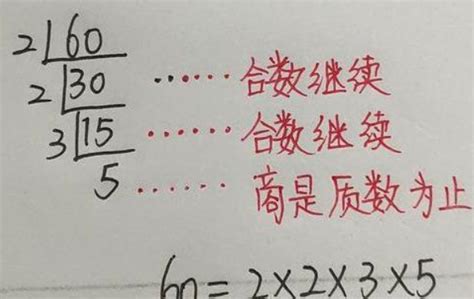 2 60
2 30 ······ 合数继续
3 15 ······ 合数继续
5 ······ 商是质数为止
60=2×2×3×5